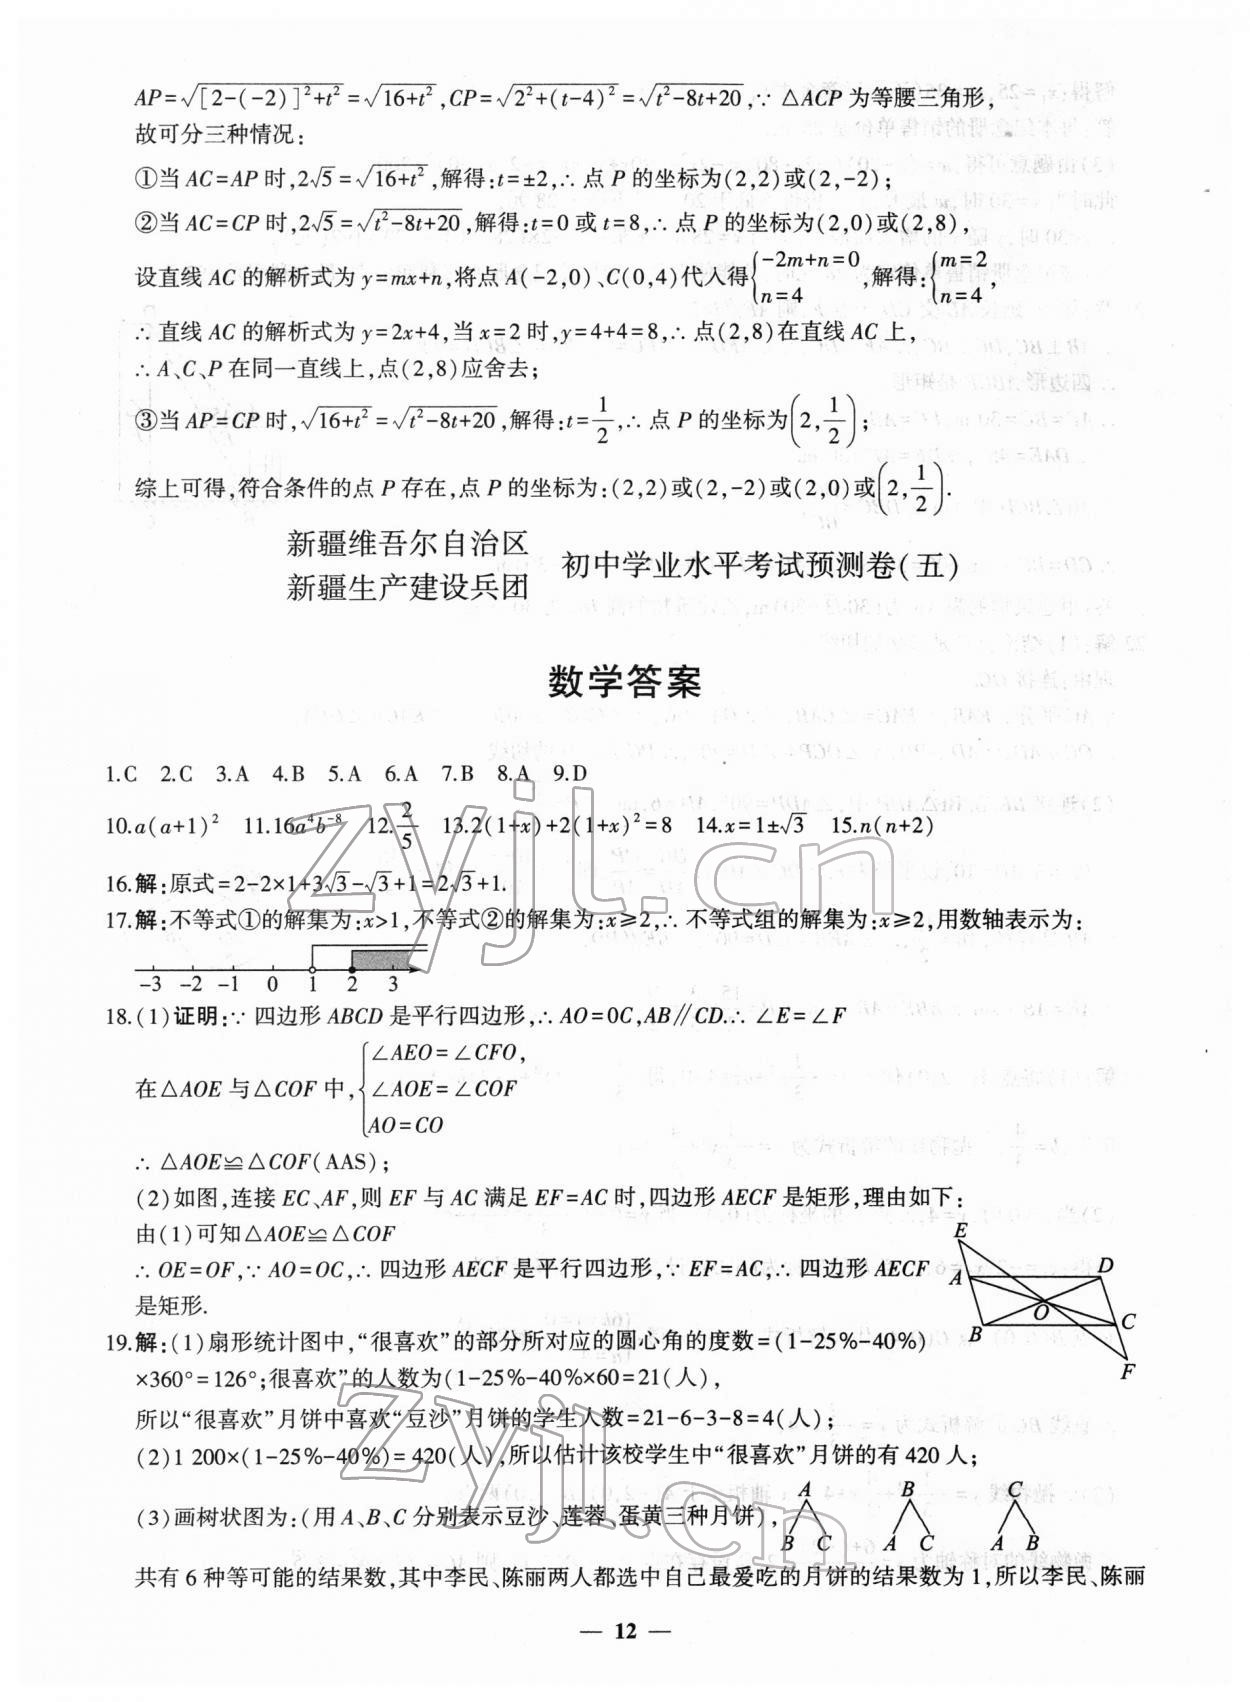 AP=√([2-(-2)]²+t²)=√(16+t²),CP=√(2²+(t-4)²)=√(t²-8t+20),∵ △ACP 为等腰三角形,
故可分三种情况:
①当 AC=AP 时,2√5=√(16+t²),解得:t=±2,∴ 点 P 的坐标为(2,2)或(2,-2);
②当 AC=CP 时,2√5=√(t²-8t+20),解得:t=0 或 t=8,∴ 点 P 的坐标为(2,0)或(2,8),
设直线 AC 的解析式为 y=mx+n,将点 A(-2,0)、C(0,4)代入得{-2m+n=0 n=4,解得:{m=2 n=4,
∴ 直线 AC 的解析式为 y=2x+4,当 x=2 时,y=4+4=8,∴ 点(2,8)在直线 AC 上,
∴ A、C、P 在同一直线上,点(2,8)应舍去;
③当 AP=CP 时,√(16+t²)=√(t²-8t+20),解得:t=1/2,∴ 点 P 的坐标为(2,1/2);
综上可得,符合条件的点 P 存在,点 P 的坐标为:(2,2)或(2,-2)或(2,0)或(2,1/2).
新疆维吾尔自治区
新疆生产建设兵团
初中学业水平考试预测卷(五)
数学答案
1.C 2.C 3.A 4.B 5.A 6.A 7.B 8.A 9.D
10.a(a+1)² 11.16a⁴b⁻⁸ 12.2/5 13.2(1+x)+2(1+x)²=8 14.x=1±√3 15.n(n+2)
16.解:原式=2-2×1+3√3-√3+1=2√3+1.
17.解:不等式①的解集为:x>1,不等式②的解集为:x≥2,∴ 不等式组的解集为:x≥2,用数轴表示为:
-3 -2 -1 0 1 2 3
18.(1)证明:∵ 四边形 ABCD 是平行四边形,∴ AO=0C,AB∥CD.∴ ∠E=∠F
在△AOE 与△COF 中,{∠AEO=∠CFO,
∠AOE=∠COF
AO=CO
∴ △AOE≌△COF(AAS);
(2)如图,连接 EC、AF,则 EF 与 AC 满足 EF=AC 时,四边形 AECF 是矩形,理由如下:
由(1)可知△AOE≌△COF
∴ OE=OF,∵ AO=OC,∴ 四边形 AECF 是平行四边形,∵ EF=AC,∴ 四边形 AECF
是矩形.
E
A D
O
B C
F
19.解:(1)扇形统计图中,“很喜欢”的部分所对应的圆心角的度数=(1-25%-40%)
×360°=126°;很喜欢”的人数为(1-25%-40%×60=21(人),
所以“很喜欢”月饼中喜欢“豆沙”月饼的学生人数=21-6-3-8=4(人);
(2)1 200×(1-25%-40%)=420(人),所以估计该校学生中“很喜欢”月饼的有 420 人;
(3)画树状图为:(用 A、B、C 分别表示豆沙、莲蓉、蛋黄三种月饼),
A B C
B C A C A B
共有 6 种等可能的结果数,其中李民、陈丽两人都选中自己最爱吃的月饼的结果数为 1,所以李民、陈丽
— 12 —
zyjl.cn
zyjl.cn